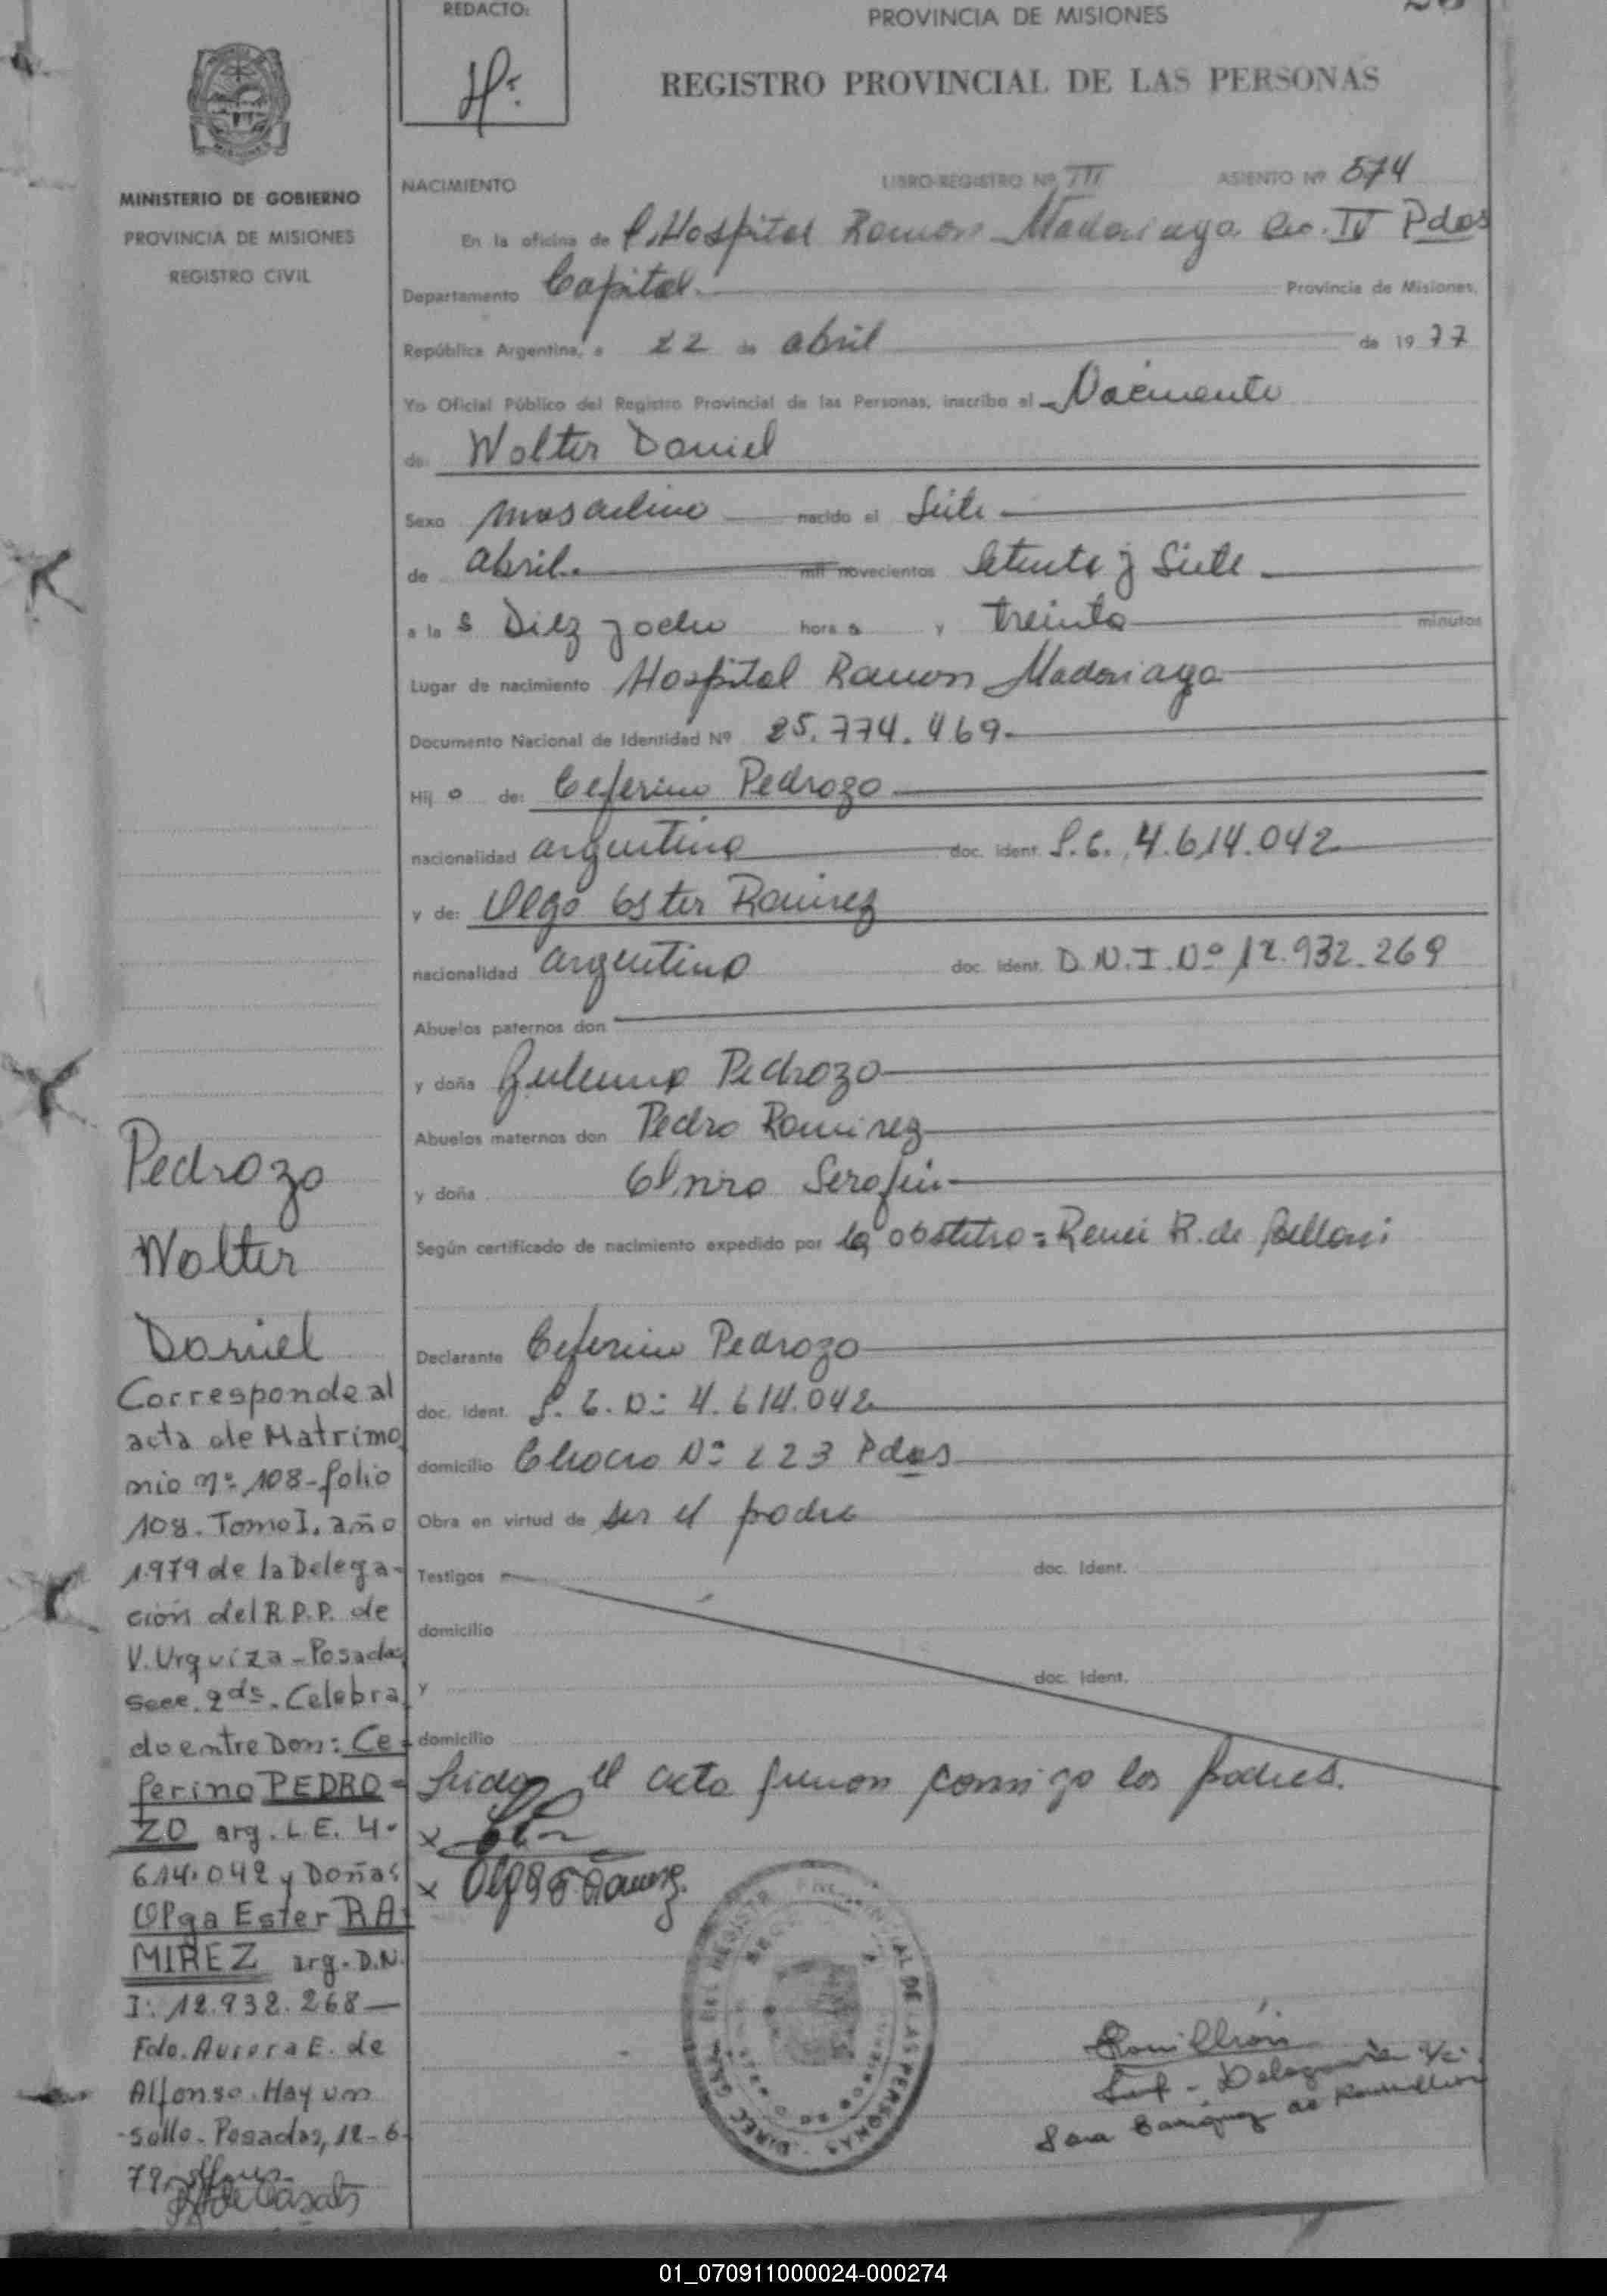 REDACTO:
PROVINCIA DE MISIONES
REGISTRO PROVINCIAL DE LAS PERSONAS
MINISTERIO DE GOBIERNO
PROVINCIA DE MISIONES
REGISTRO CIVIL
NACIMIENTO LIBRO-REGISTRO Nº III ASIENTO Nº 574
En la oficina de Hospital Ramon Madariaga Sec. IV Pdas
Departamento Capital. Provincia de Misiones,
República Argentina, a 22 de abril de 1977
Yo Oficial Público del Registro Provincial de las Personas, inscribo el Nacimiento
de: Walter Daniel
Sexo masculino nacido el Siete
de abril. mil novecientos setenta y Siete
a las Diez y ocho horas y treinta minutos
Lugar de nacimiento Hospital Ramon Madariaga
Documento Nacional de Identidad Nº 25.774.469.
Hijo de: Ceferino Pedrozo
nacionalidad argentina doc. ident. L.E. 4.614.042
y de: Olga Ester Ramirez
nacionalidad argentina doc. ident. D.N.I. Nº 12.932.268
Abuelos paternos don
y doña Pedrozo
Abuelos maternos don Pedro Ramirez
y doña Elvira Serafin
Según certificado de nacimiento expedido por la obstetra = R. de Belloni
Declarante Ceferino Pedrozo
doc. ident. L.E. Nº 4.614.042
domicilio Chaco Nº 223 Pdas
Obra en virtud de ser el padre
Testigos doc. ident.
domicilio
y doc. ident.
domicilio
Leida el acta firman conmigo los padres.
x
x Olga E. Ramirez.
Pedrozo
Walter
Daniel
Corresponde al
acta de Matrimo
nio nº 108-folio
108. Tomo I. año
1979 de la Delega-
ción del R.P.P. de
V. Urquiza - Posadas
Secc. 2da. Celebra
do entre Don: Ce-
ferino PEDRO=
ZO arg. L.E. 4.
614.042 y Doña:
Olga Ester RA=
MIREZ arg. D.N.
I: 12.932.268—
Fdo. Aurora E. de
Alfonso. Hay un
sello. Posadas, 12-6-
79
DEL REGISTRO PROVINCIAL DE LAS PERSONAS - DIREC. GRAL.
01_070911000024-000274